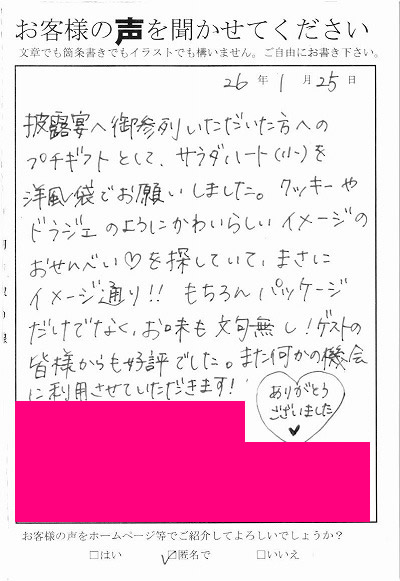 お客様の声を聞かせてください
文章でも箇条書きでもイラストでも構いません。ご自由にお書き下さい。
26年1月25日
披露宴へ御参列いただいた方への
プチギフトとして、サラダハート(小)を
洋風袋でお願いしました。クッキーや
ドラジェのようにかわいらしいイメージの
おせんべい♡を探していて、まさに
イメージ通り!! もちろんパッケージ
だけでなく、お味も文句無し!ゲストの
皆様からも好評でした。また何かの機会
に利用させていただきます!
ありがとう
ございました
♥
お客様の声をホームページ等でご紹介してよろしいでしょうか?
□はい ☑匿名で □いいえ